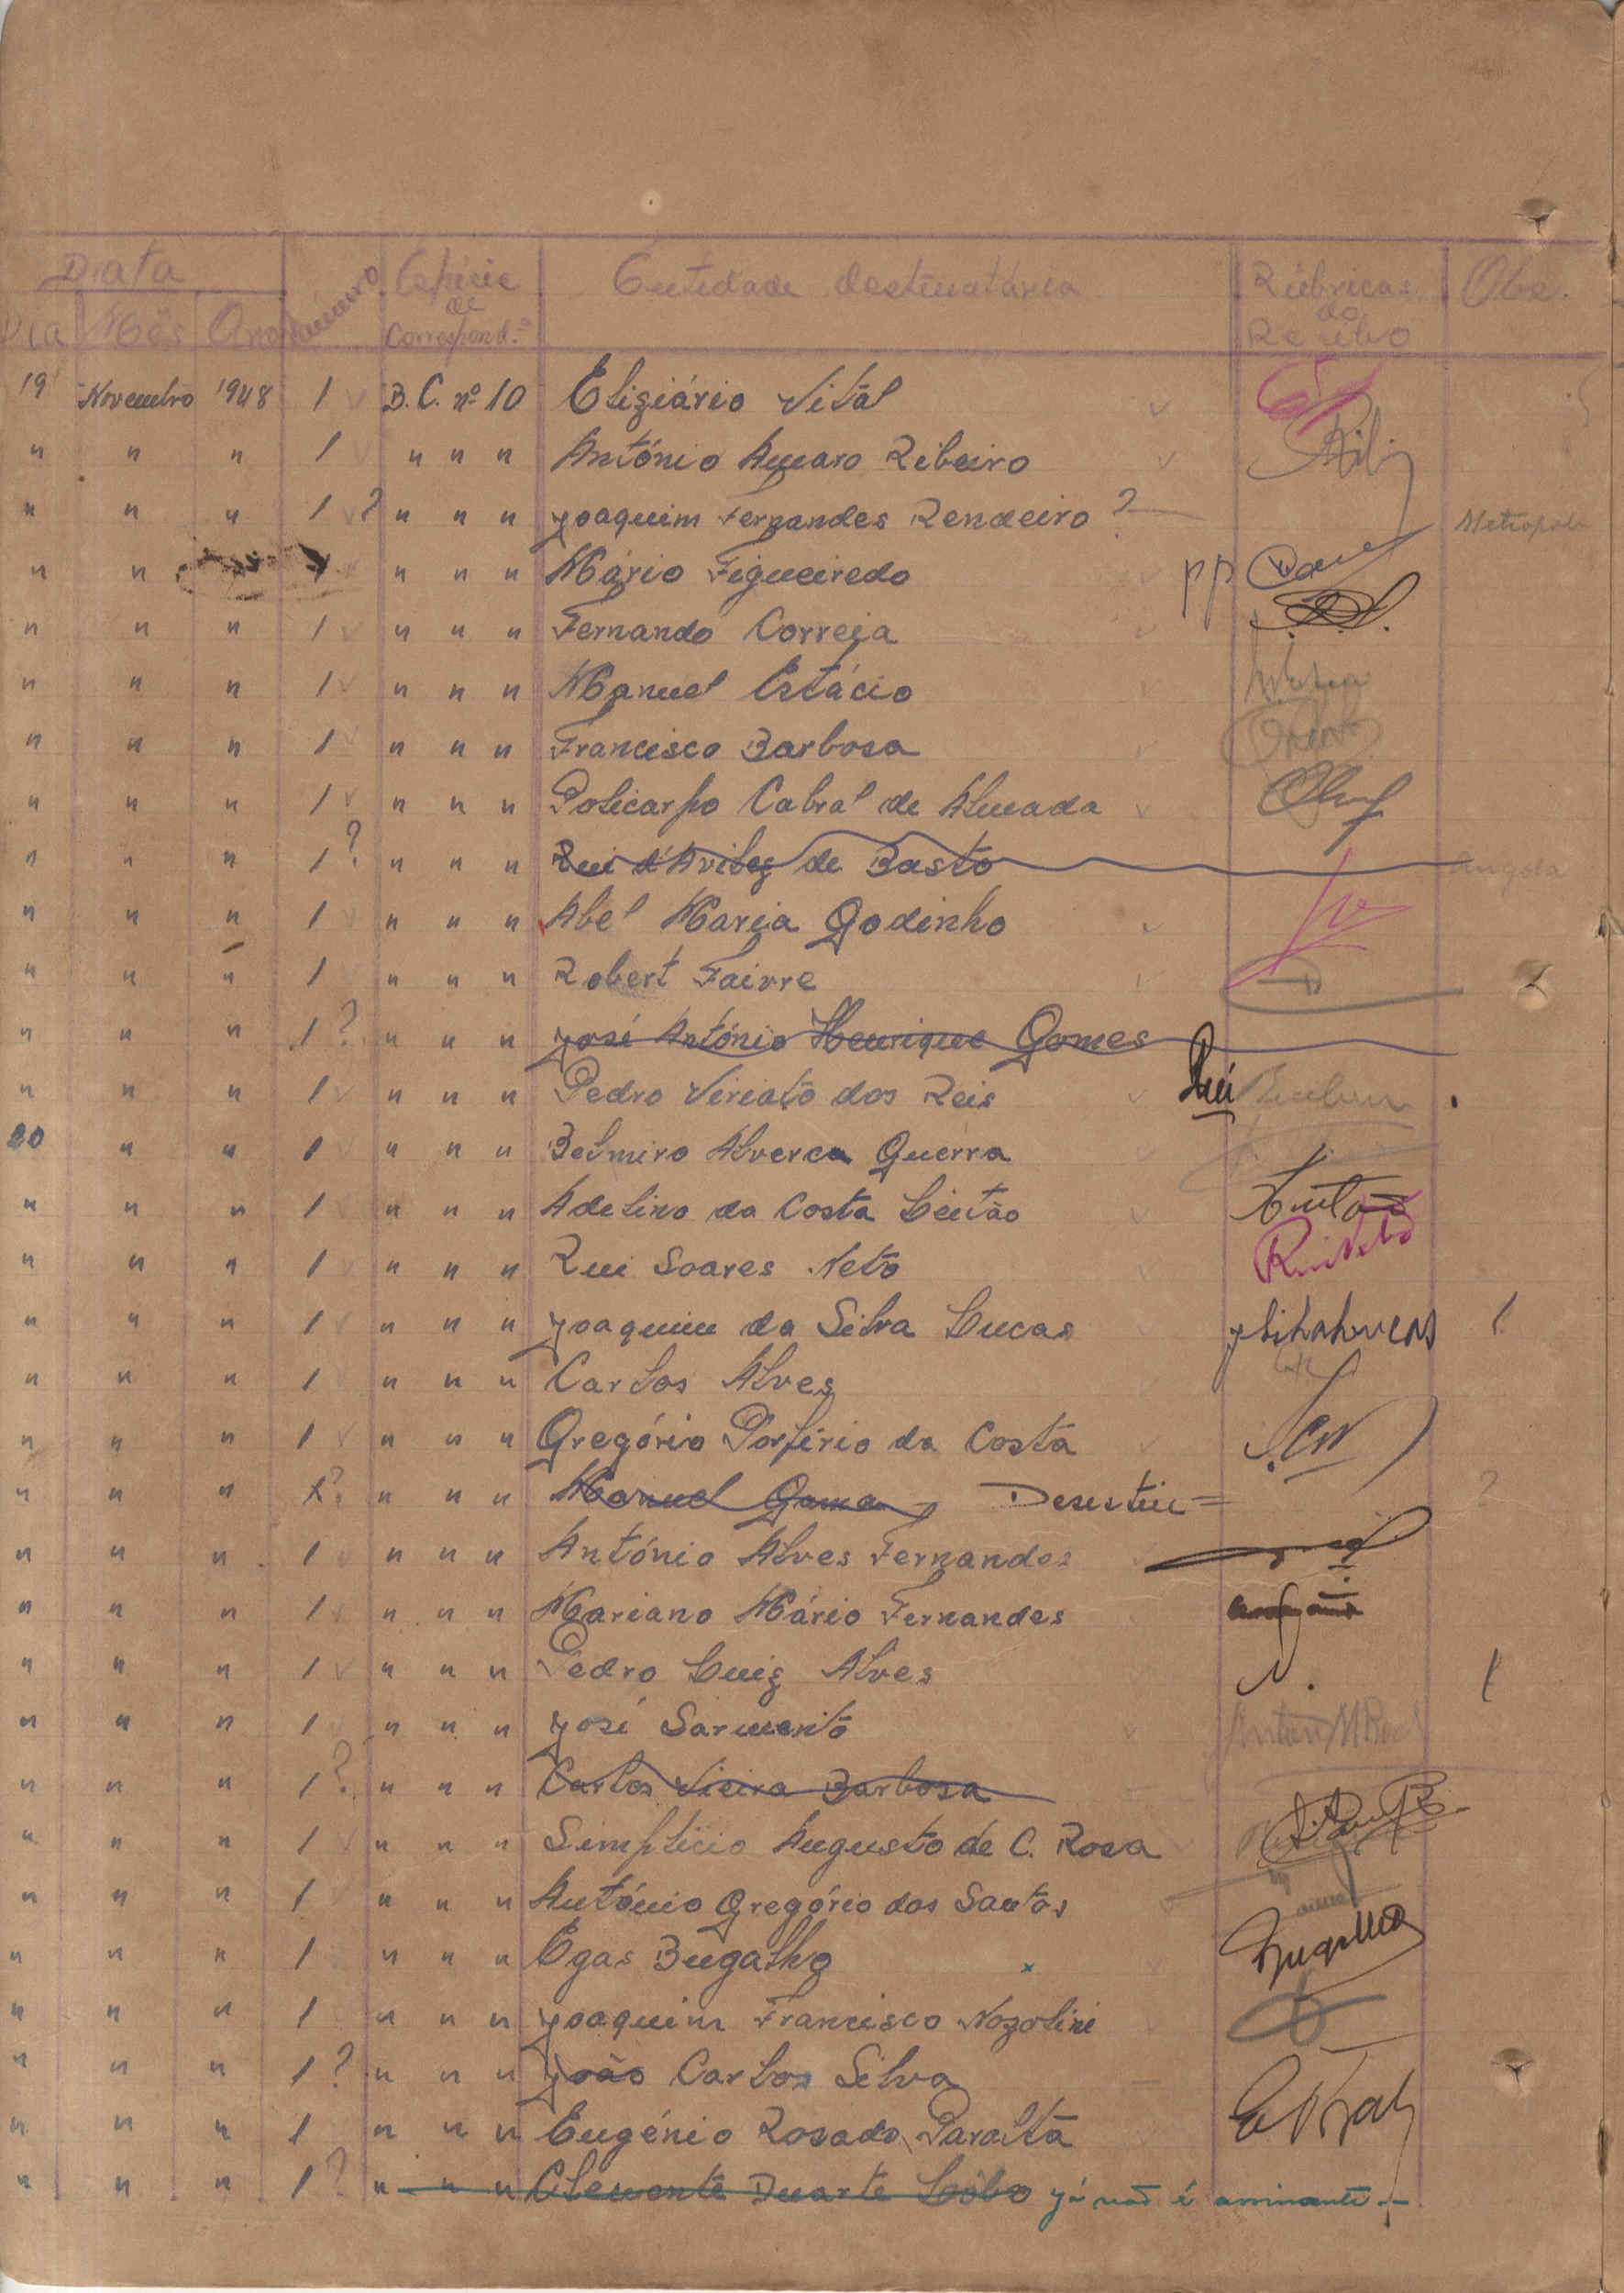 Data Número Espécie de Correspond.ª Entidade destinatária Rúbricas do Recibo Obs.
Dia Mês Ano
19 Novembro 1948 1 B.C. nº 10 Eligiário Vital
" " " 1 " " " António Amaro Ribeiro
" " " 1 ? " " " Joaquim Fernandes Rendeiro ? Metropole
" " " 1 " " " Mário Figueiredo pp
" " " 1 " " " Fernando Correia
" " " 1 " " " Manuel Estácio
" " " 1 " " " Francisco Barbosa
" " " 1 " " " Policarpo Cabral de Almada
" " " 1 ? " " " Rui d'Avilez de Basto Angola
" " " 1 " " " Abel Maria Godinho
" " " 1 " " " Robert Faivre
" " " 1 ? " " " José António Henrique Gomes
" " " 1 " " " Pedro Viriato dos Reis
20 " " 1 " " " Belmiro Alverca Guerra
" " " 1 " " " Adelino da Costa Leitão Leitão
" " " 1 " " " Rui Soares Neto Rui Neto
" " " 1 " " " Joaquim da Silva Lucas
" " " 1 " " " Carlos Alves
" " " 1 " " " Gregório Porfirio da Costa
" " " 1 ? " " " Manuel Gama Desistiu = ?
" " " 1 " " " António Alves Fernandes
" " " 1 " " " Mariano Mário Fernandes
" " " 1 " " " Pedro Luiz Alves
" " " 1 " " " José Sarmento
" " " 1 ? " " " Carlos Vieira Barbosa
" " " 1 " " " Simplicio Augusto de C. Rosa
" " " 1 " " " António Gregório dos Santos
" " " 1 " " " Egas Bugalho x Bugalho
" " " 1 " " " Joaquim Francisco Nozolini
" " " 1 ? " " " João Carlos Silva
" " " 1 " " " Eugénio Rosado Paralta
" " " 1 ? " " " Clemente Duarte Lobo já não é assinante.-